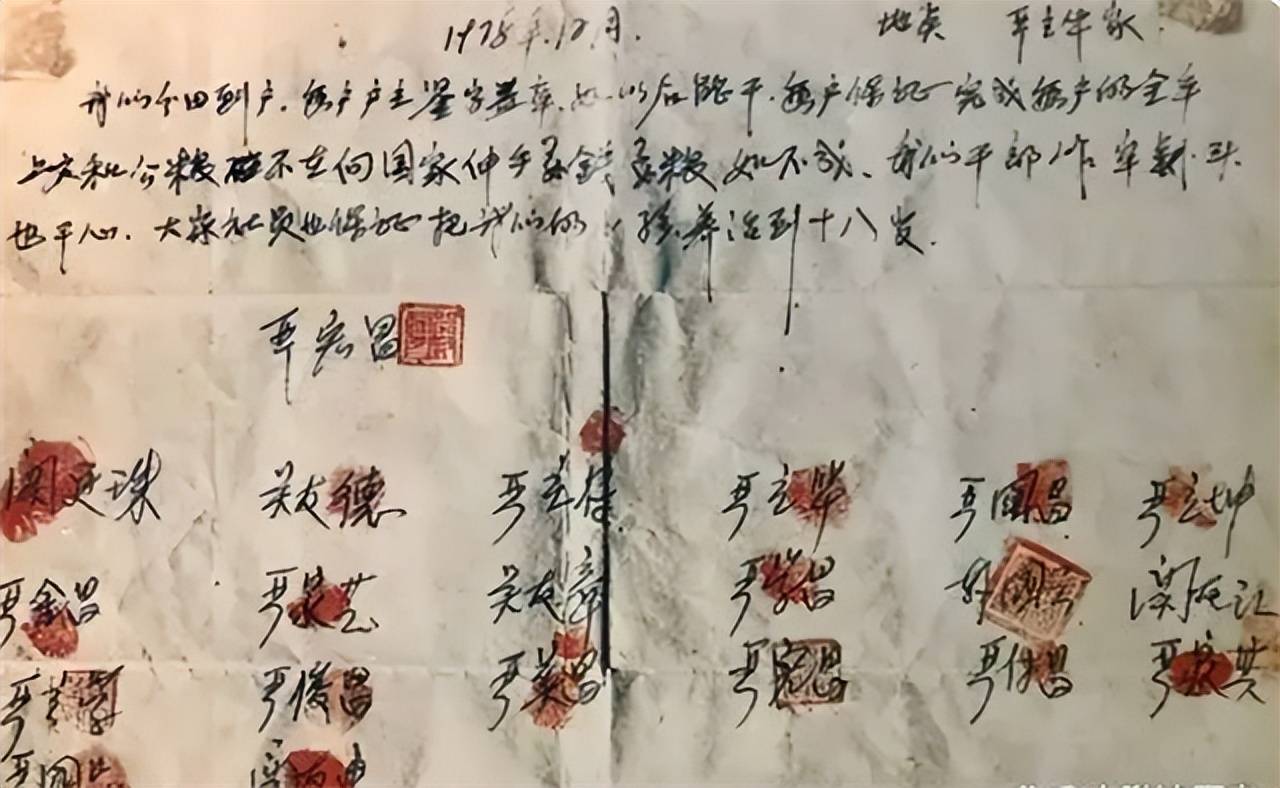 1978年12月. 地点 严立华家.
我们分田到户.每户户主鉴字盖章.如以后能干.每户保证完成每户的全年
上交和公粮 不在向国家伸手要钱要粮 如不成、我们干部作牢 头
也干心.大家社员也保证把我们的小孩.养活到十八岁.
严宏昌
关廷珠 关友德 严立符 严立华 严国昌 严立坤
严金昌 严家芝 关友章 严学昌 国 关友江
严立学 严俊昌 严美昌 严宏昌 严付昌 严家其
严国 关友申